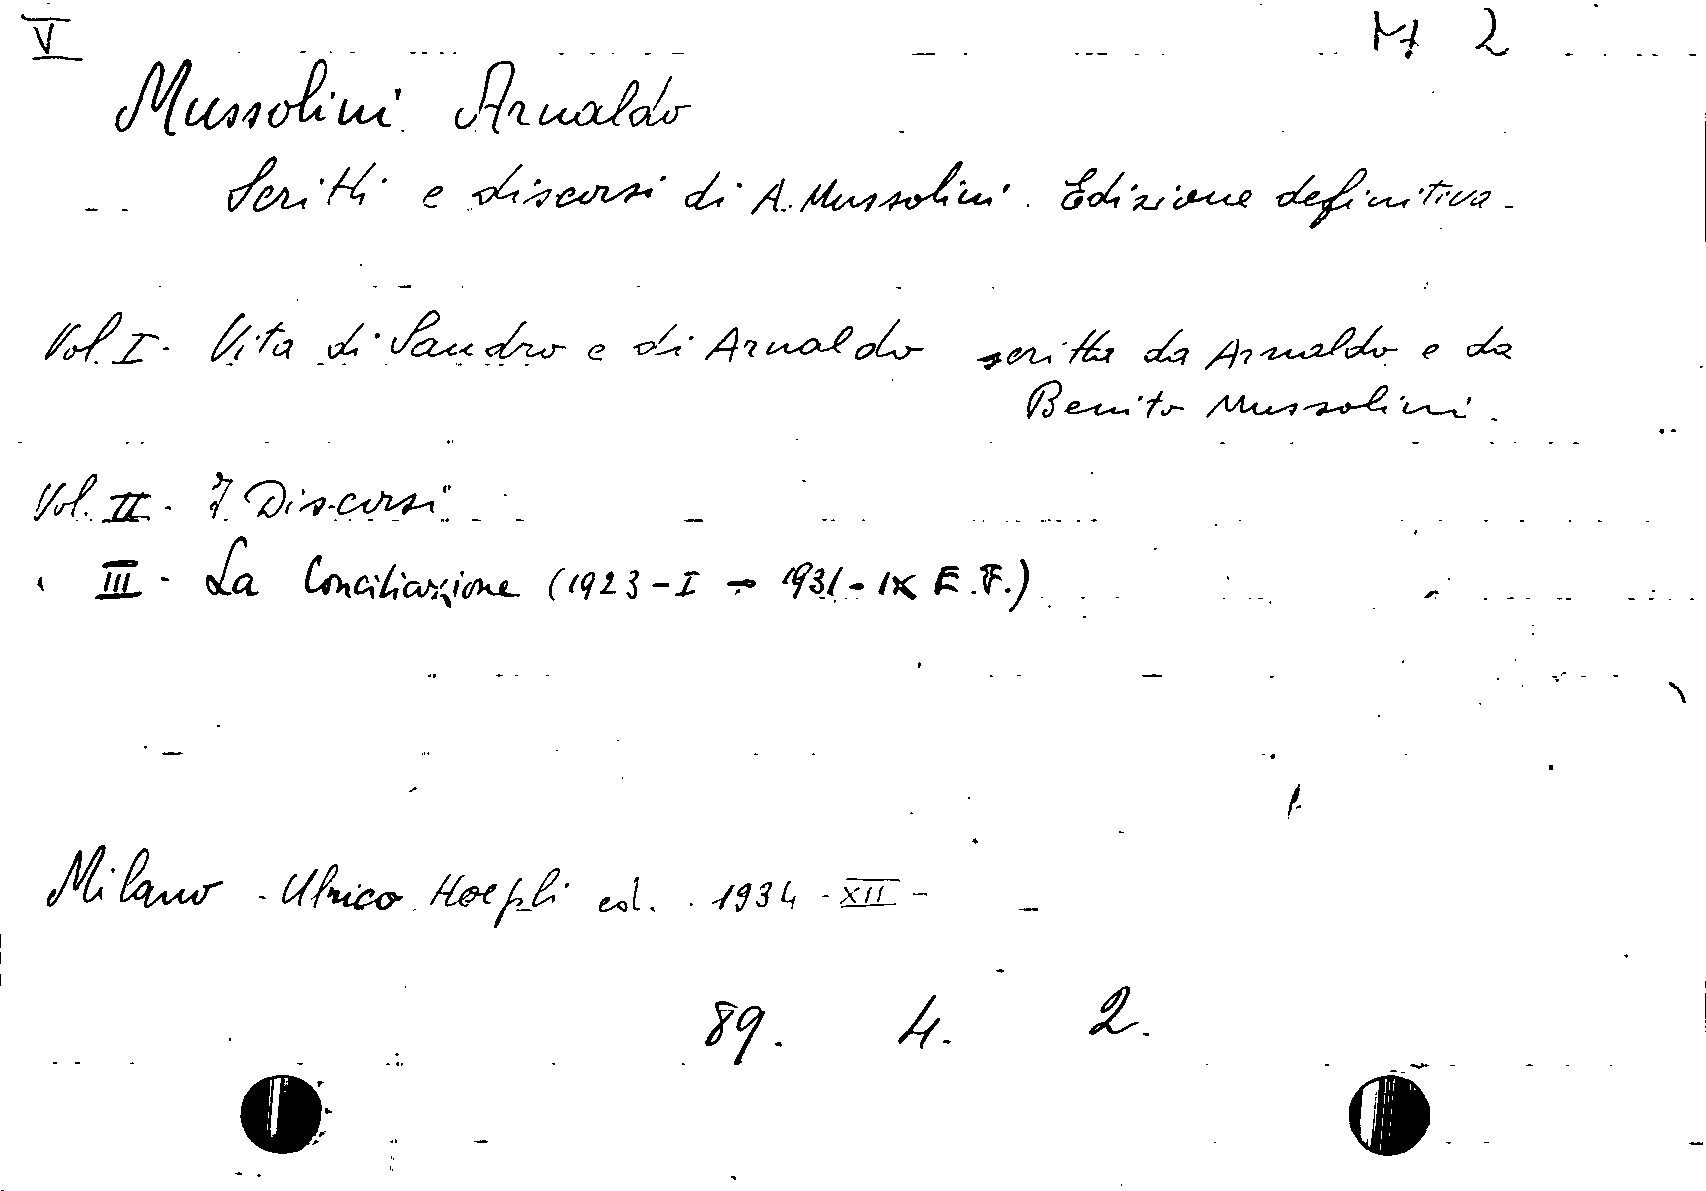 V M 2
Mussolini Arnaldo
Scritti e discorsi di A. Mussolini. Edizione definitiva.
Vol. I - Vita di Sandro e di Arnaldo scritta da Arnaldo e da
Benito Mussolini.
Vol. II - I Discorsi
" III - La Conciliazione (1923 - I → 1931 - IX E.F.)
Milano - Ulrico Hoepli ed. . 1934 - XII -
89. 4. 2.